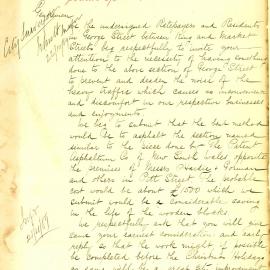 Gentlemen
We the undersigned Ratepayers and Residents
in George Street between King and Market
Streets beg respectfully to invite your
attention to the necessity of having something
done to the above section of George Street
to prevent and deaden the noise of the
heavy traffic which causes so inconvenience
and discomfort in our respective businesses
and enjoyments.
We beg to submit that the best method
would be to asphalt the section named
similar to the piece done by The Patent
Asphaltum Co of New South Wales opposite
the premises of Messrs
and others in Pitt Street the
cost would be about £1500 which we
submit would be a considerable saving
in the life of the wooden blocks.
We respectfully ask that you will give
same your earliest consideration and early
reply so that the work might if possible
be completed before the Christmas Holidays
City Surveyor